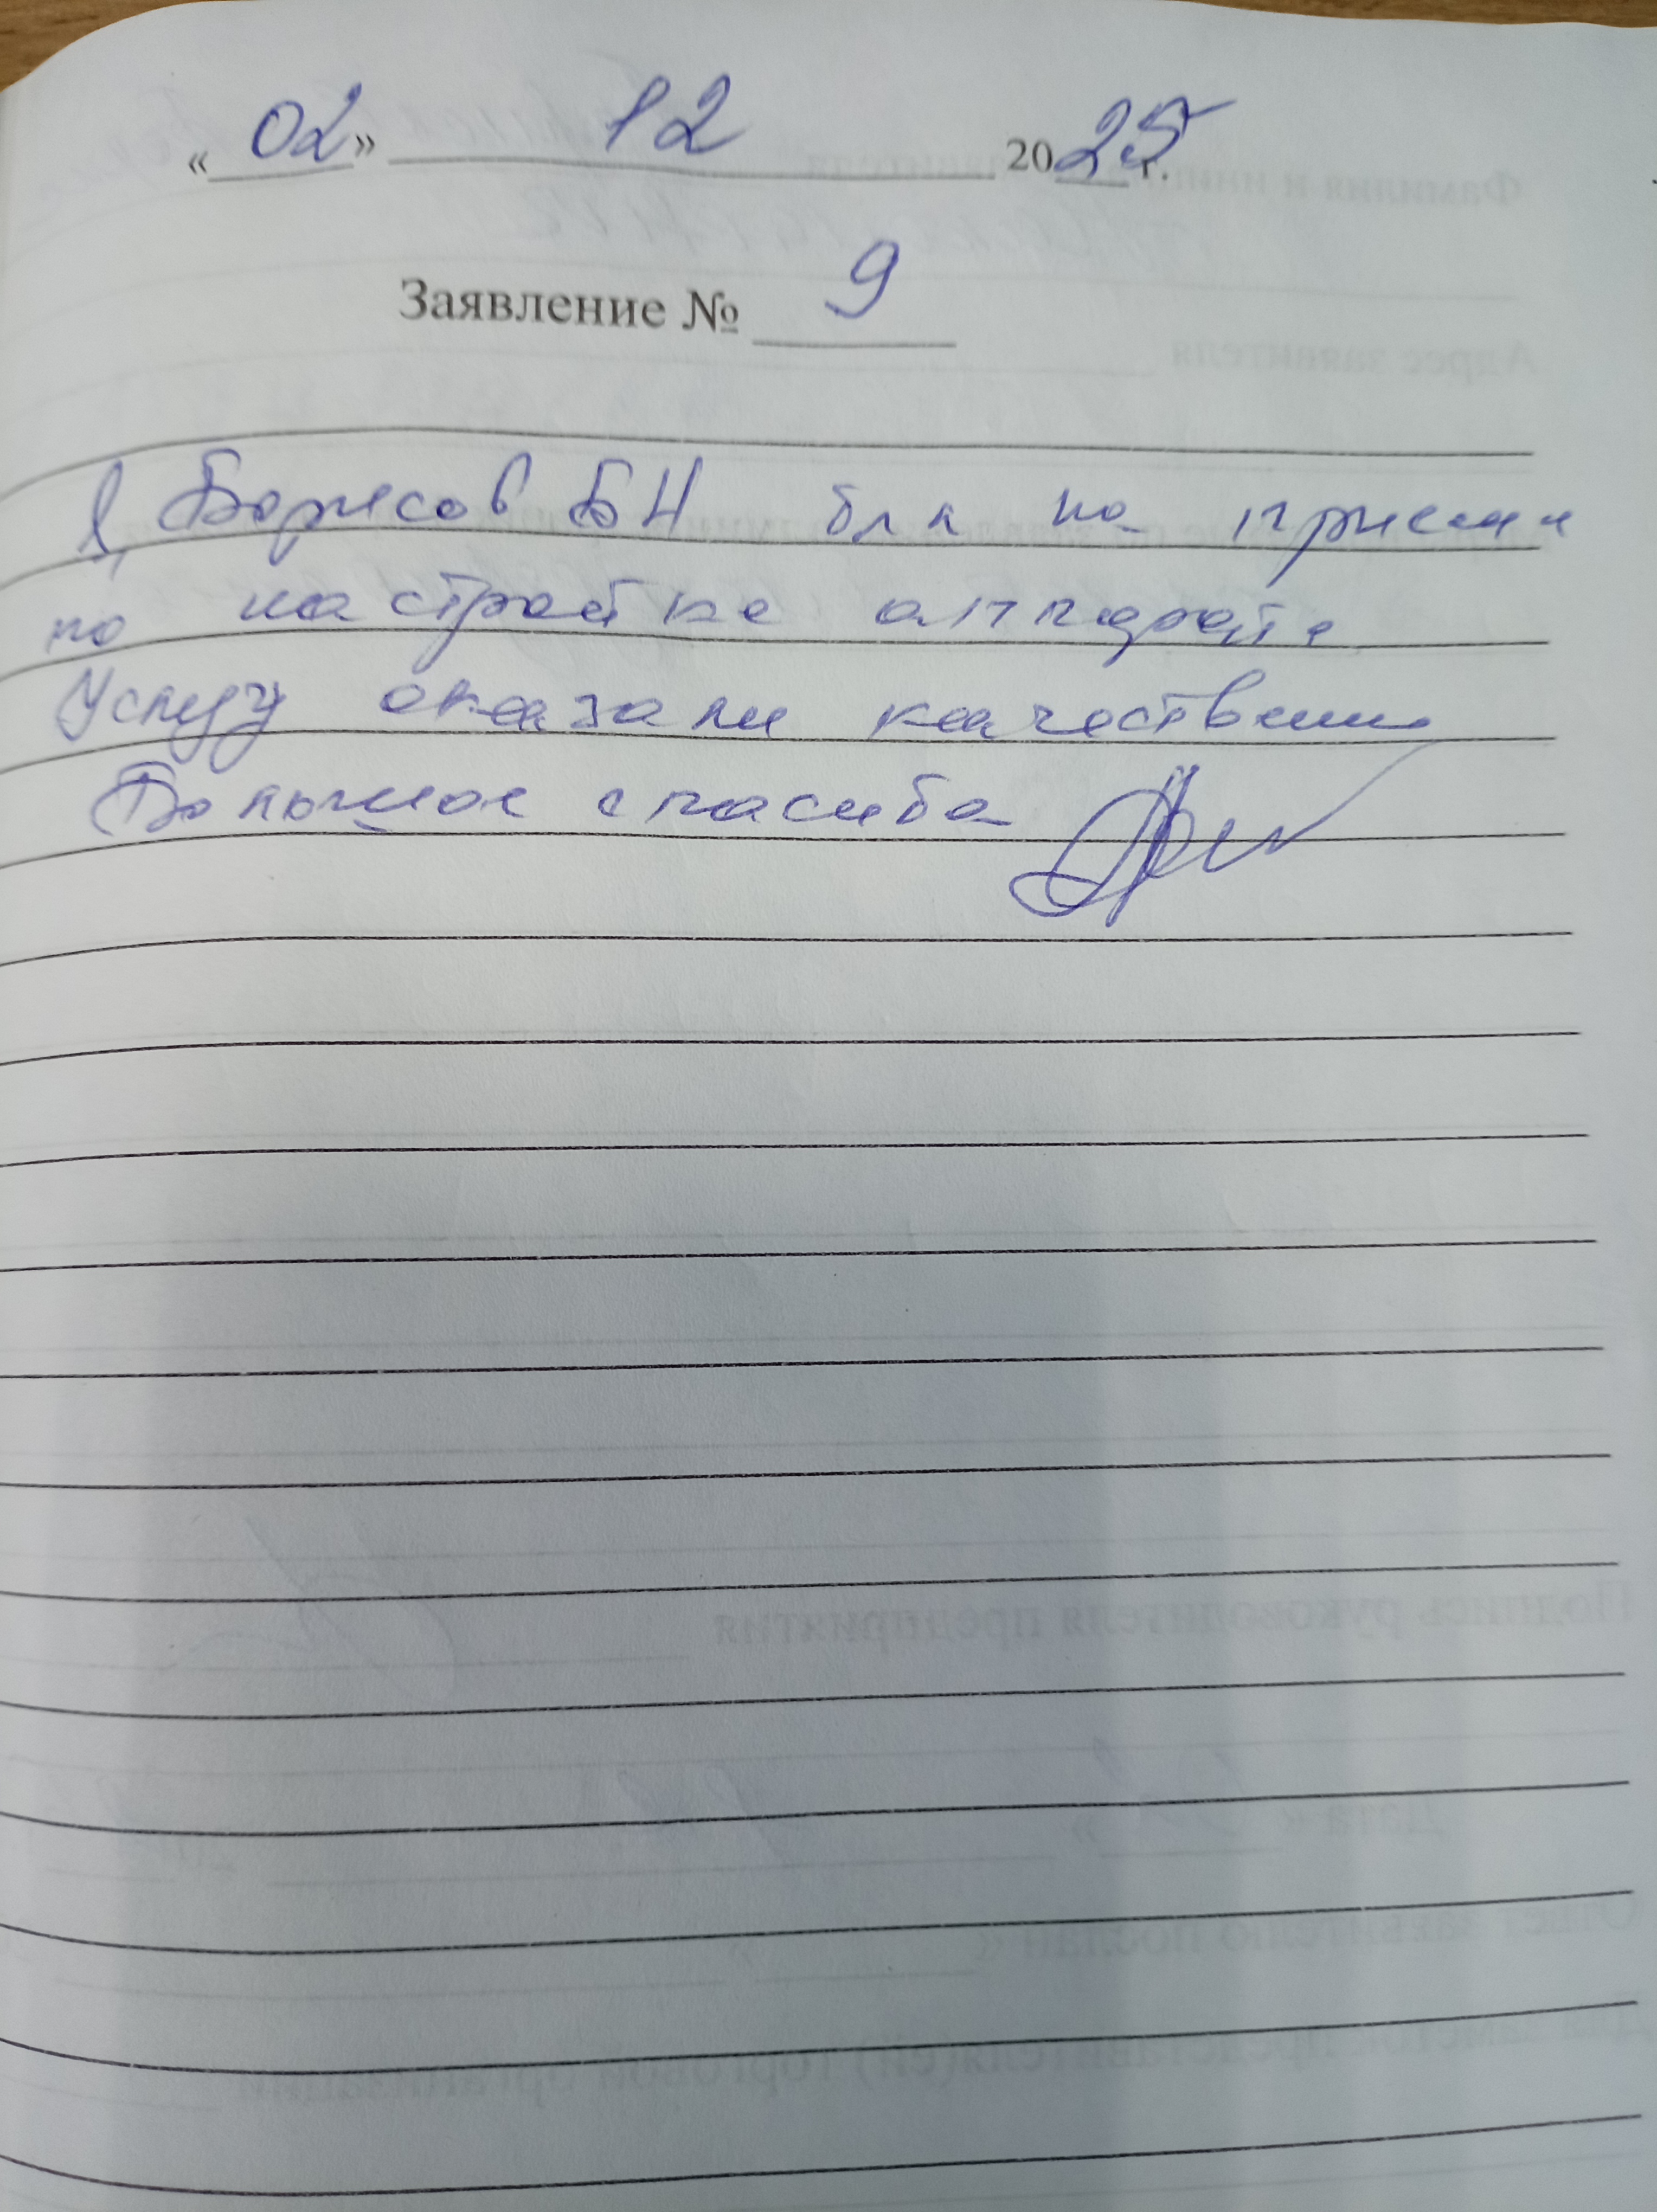 «02» 12 2025 г.
Заявление № 9
Я, Борисов БН был на приеме
по настройке аппарата
Услугу оказали качественно
Большое спасибо